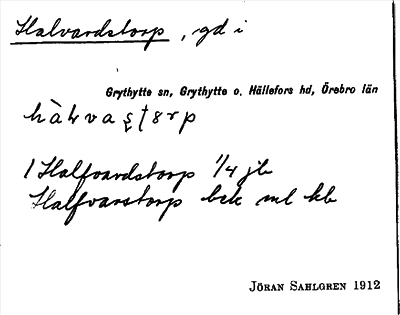 Halvardstorp, gd i
Grythytte sn, Grythytte o. Hällefors hd, Örebro län
hàlvaşt8rp
1 Halfvardstorp 1/4 jb
Halfvarstorp bek ml kb
JÖRAN SAHLGREN 1912